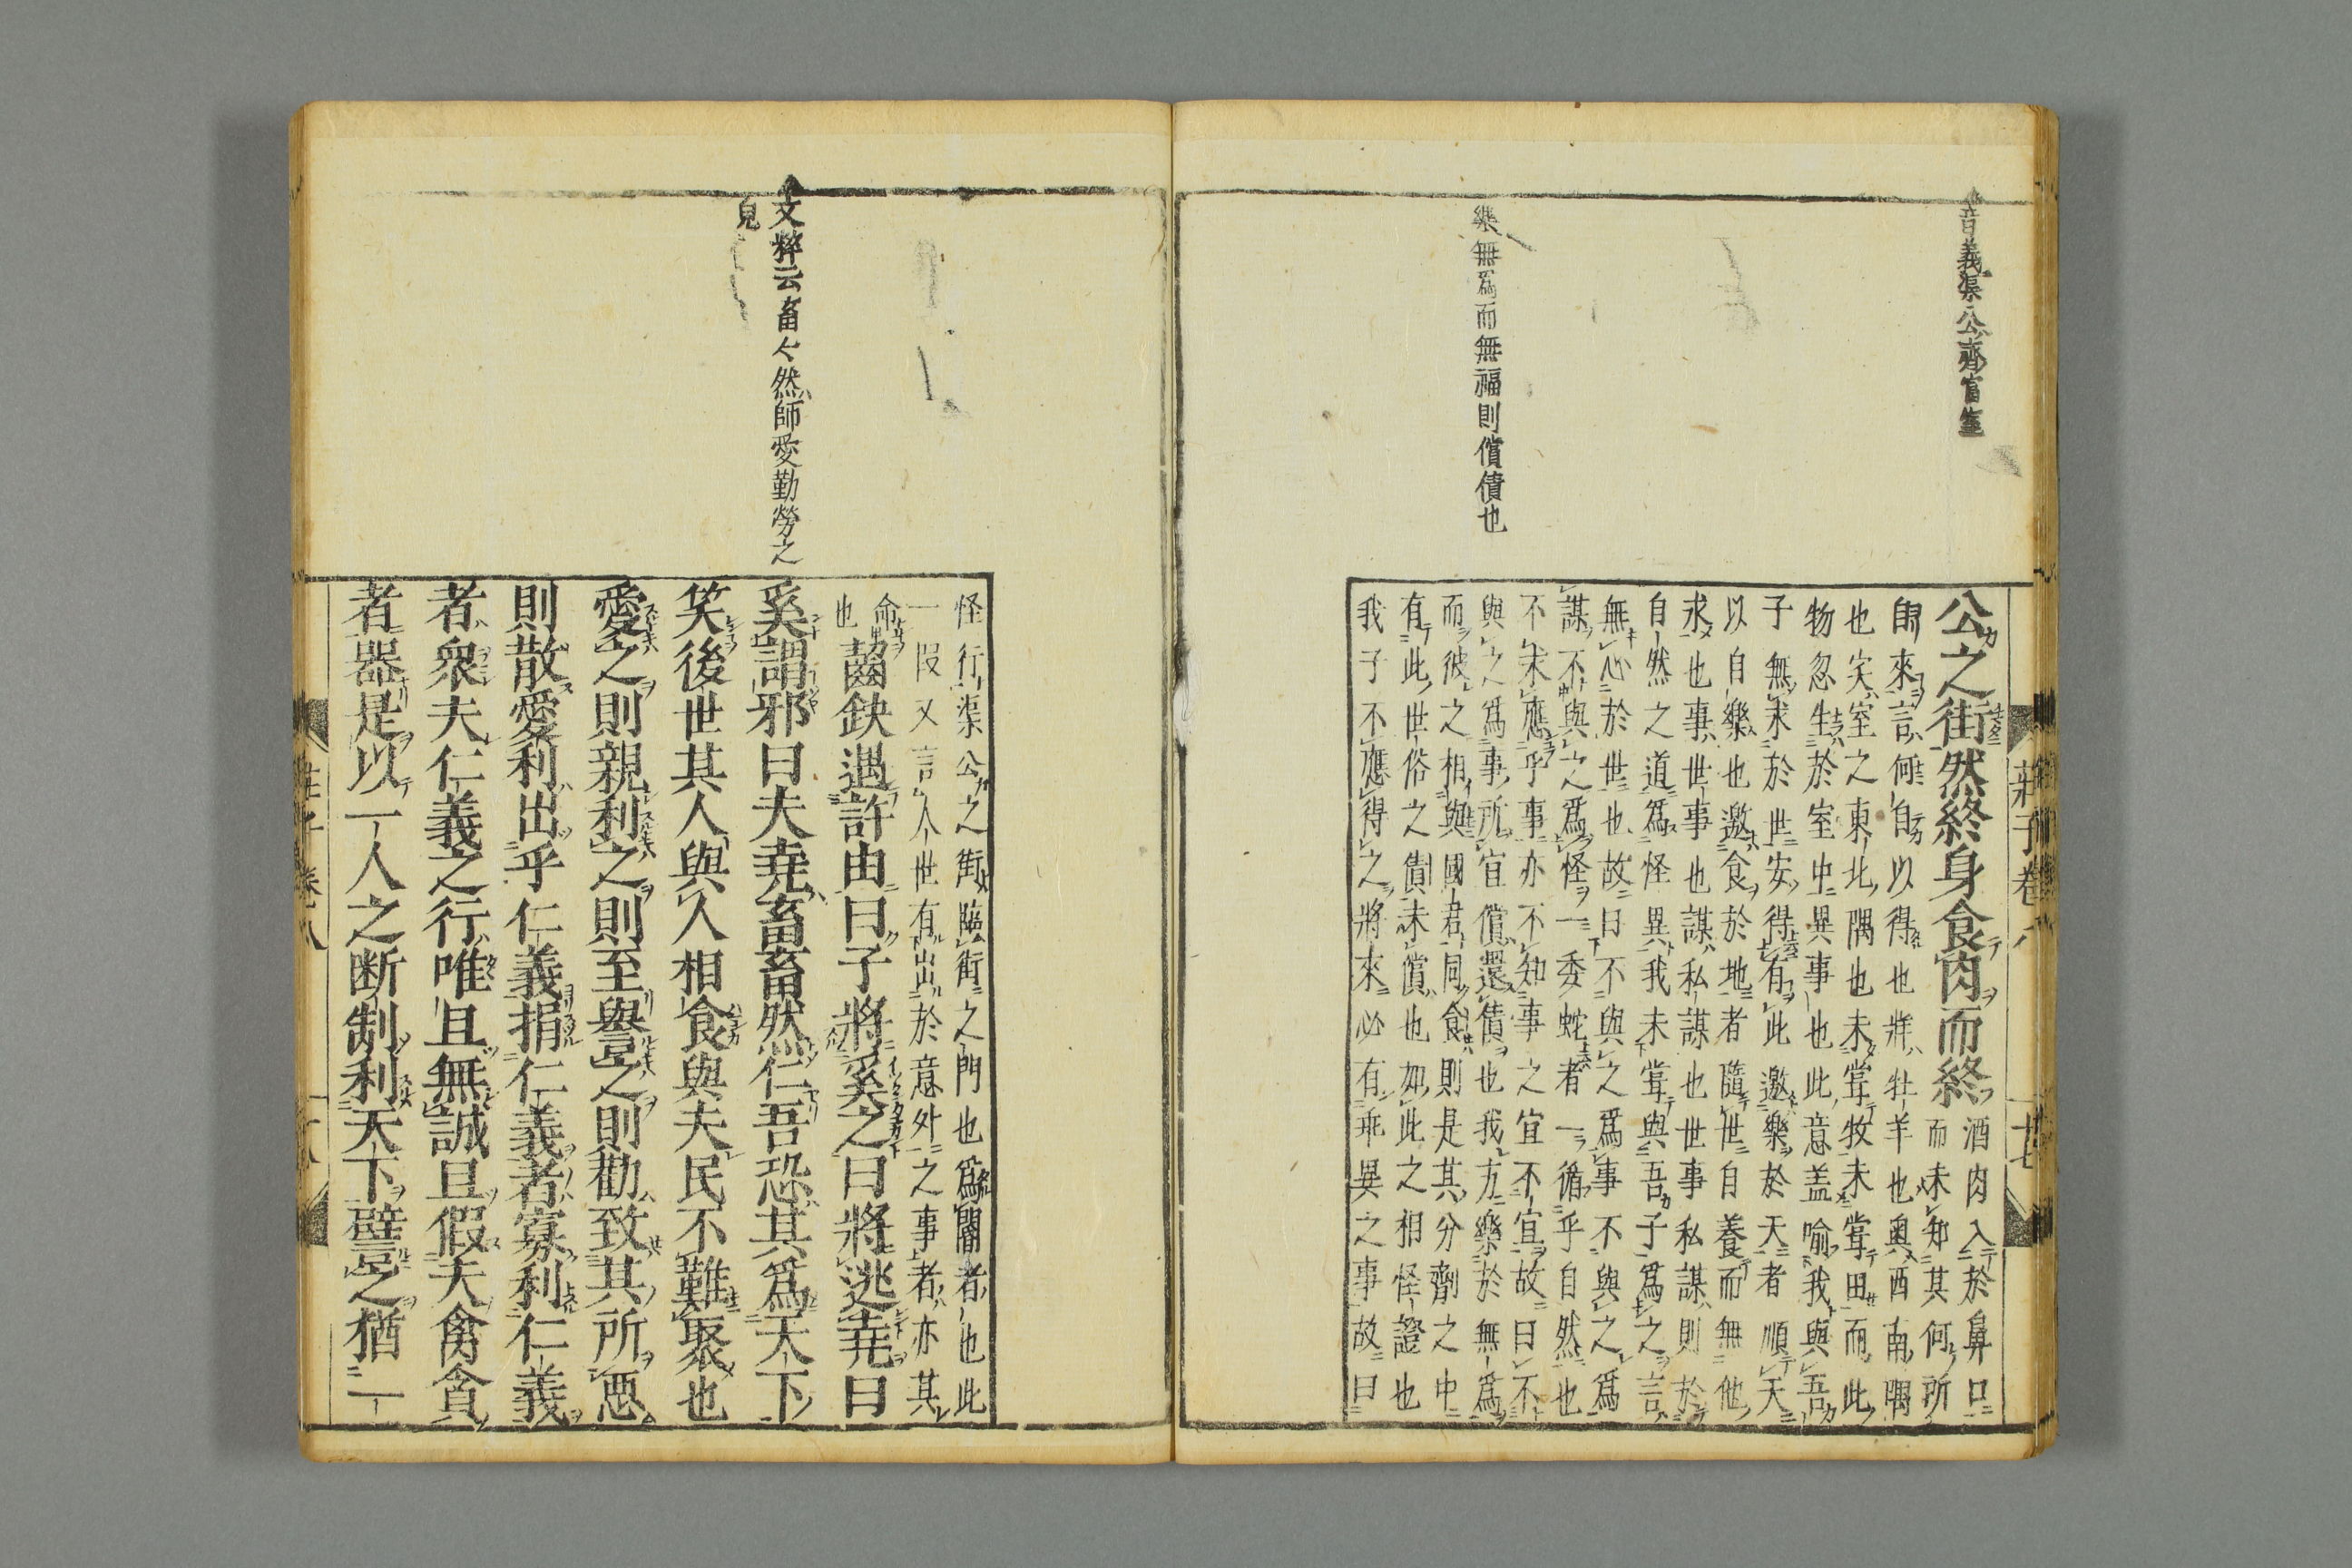 音義渠公齊富室
樂無爲而無福則償債也
莊子卷八
十七
公之街然終身食肉而終
酒肉入於鼻口
而未知其何所
自來言何自以得也牂牡羊也奧西南隅
也宎室之東北隅也未嘗牧未嘗田而此
物忽生於室中異事也此意盖喻我與吾
子無求於世安得有此邀樂於天者順天
以自樂也邀食於地者隨世自養而無他
求也事世事也謀私謀也世事私謀則於
自然之道爲怪異我未嘗與吾子爲之言
無心於世也故曰不與之爲事不與之爲
謀不與之爲怪一委蛇者一循乎自然也
不求應乎事亦不知事之宜不宜故曰不
與之爲事所宜償還債也我方樂於無爲
而彼之相與國君同食則是其分劑之中
有此世俗之債未償也如此之相怪證也
我子不應得之將來必有乖異之事故曰
文粹云畜々然師愛勤勞之
皃
怪行渠公之街臨街之門也爲閽者也此
一段又言人世有出於意外之事者亦其
命
也
齧缺遇許由曰子將奚之曰將逃堯曰
奚謂邪曰夫堯畜畜然仁吾恐其爲天下
笑後世其人與人相食與夫民不難聚也
愛之則親利之則至譽之則勸致其所惡
則散愛利出乎仁義捐仁義者寡利仁義
者衆夫仁義之行唯且無誠且假夫禽貪
者器是以一人之断制利天下譬之猶一
莊子卷八